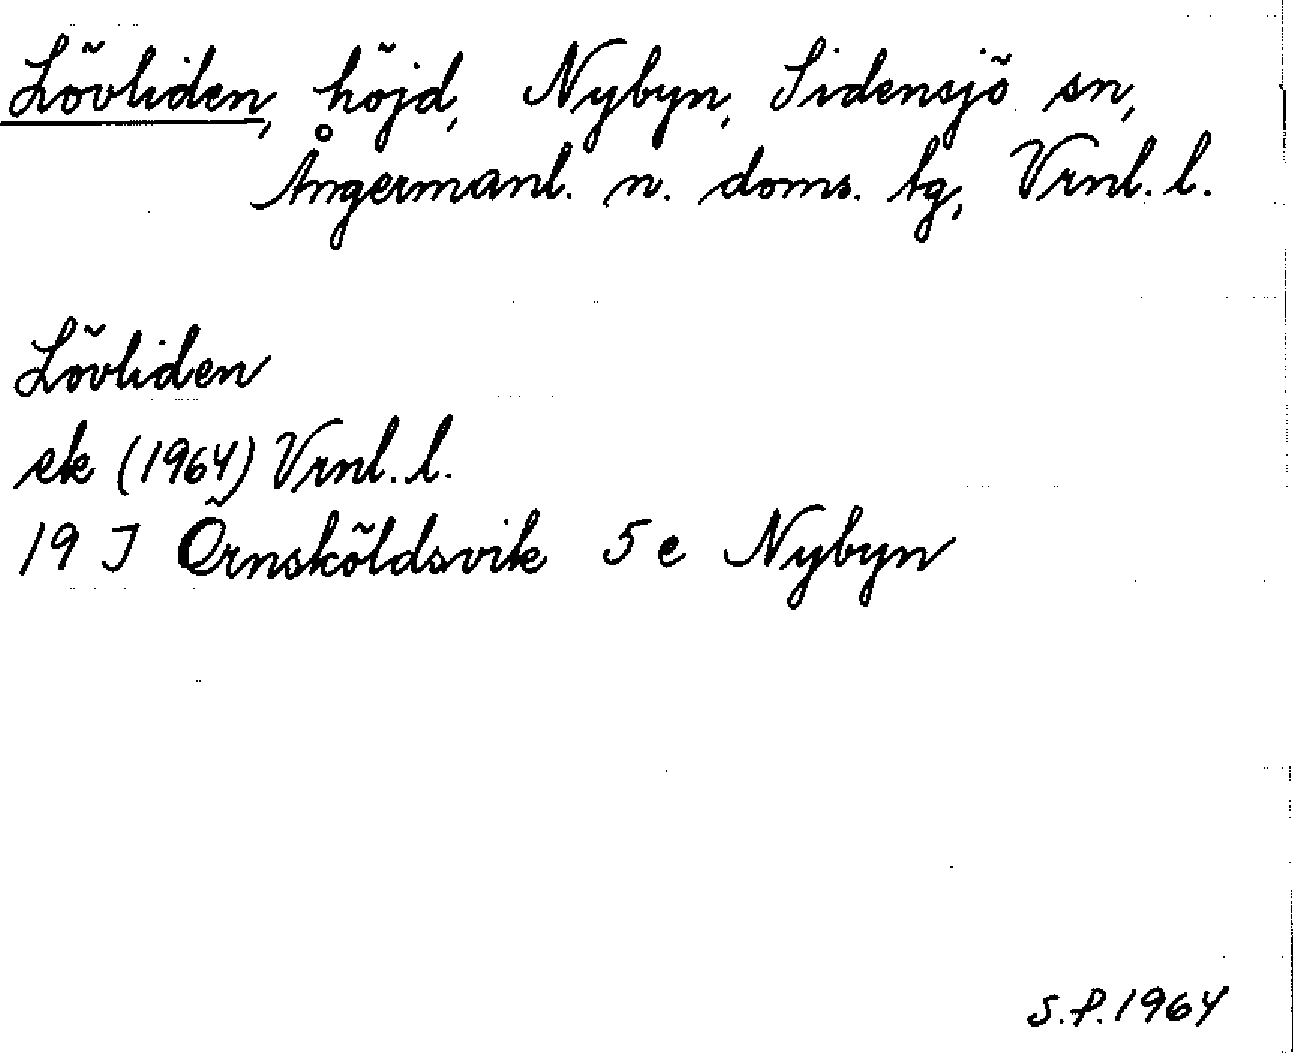 Lövliden, höjd, Nybyn, Sidensjö sn,
Ångermanl. n. doms. tg, Vrnl. l.
Lövliden
ek (1964) Vrnl. l.
19 J Örnsköldsvik 5 e Nybyn
S.P. 1964